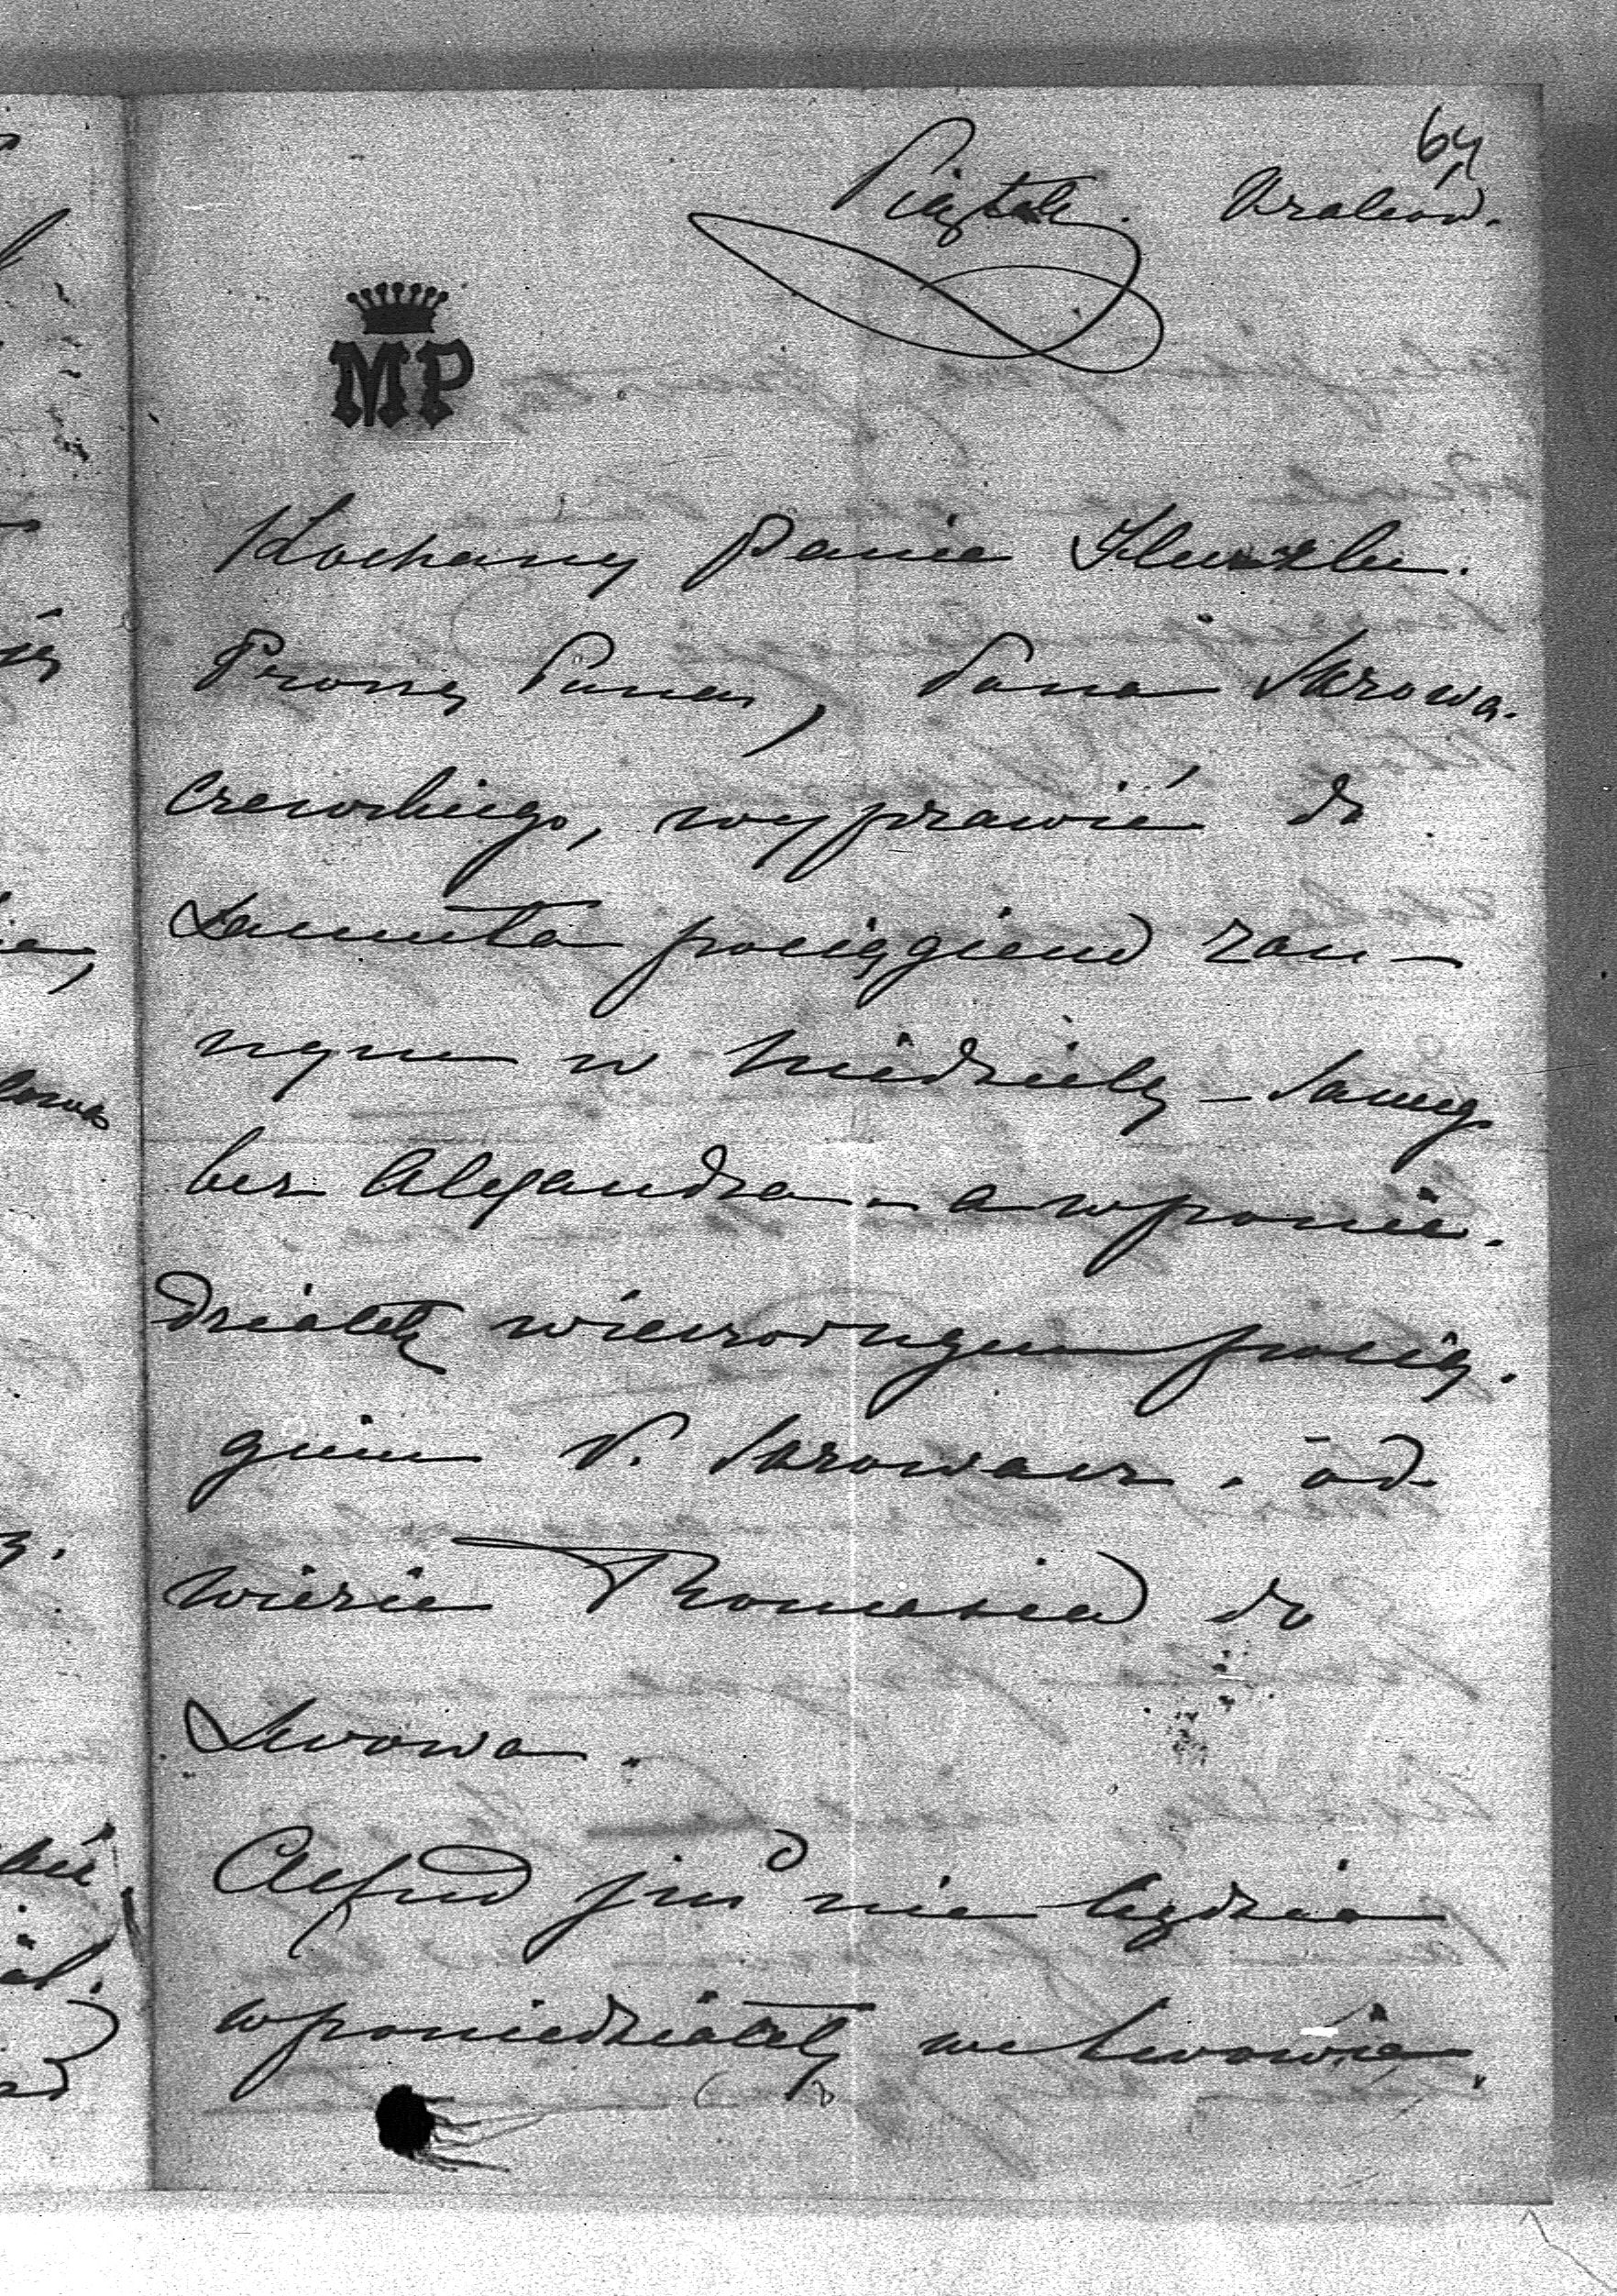 64
Piątek. Kraków.
MP
Kochany Panie
Proszę Pana, Pana Skrowa-
czewskiego, wyprawić do
Łańcuta pociągiem ran-
nym w niedzielę – samego
bez Alexandra – a w ponie-
działek wieczornym pocią-
giem P. Skrowacz. od-
wiezie Thomasia do
Lwowa.
Alfred już nie będzie
w poniedziałek we Lwowie.